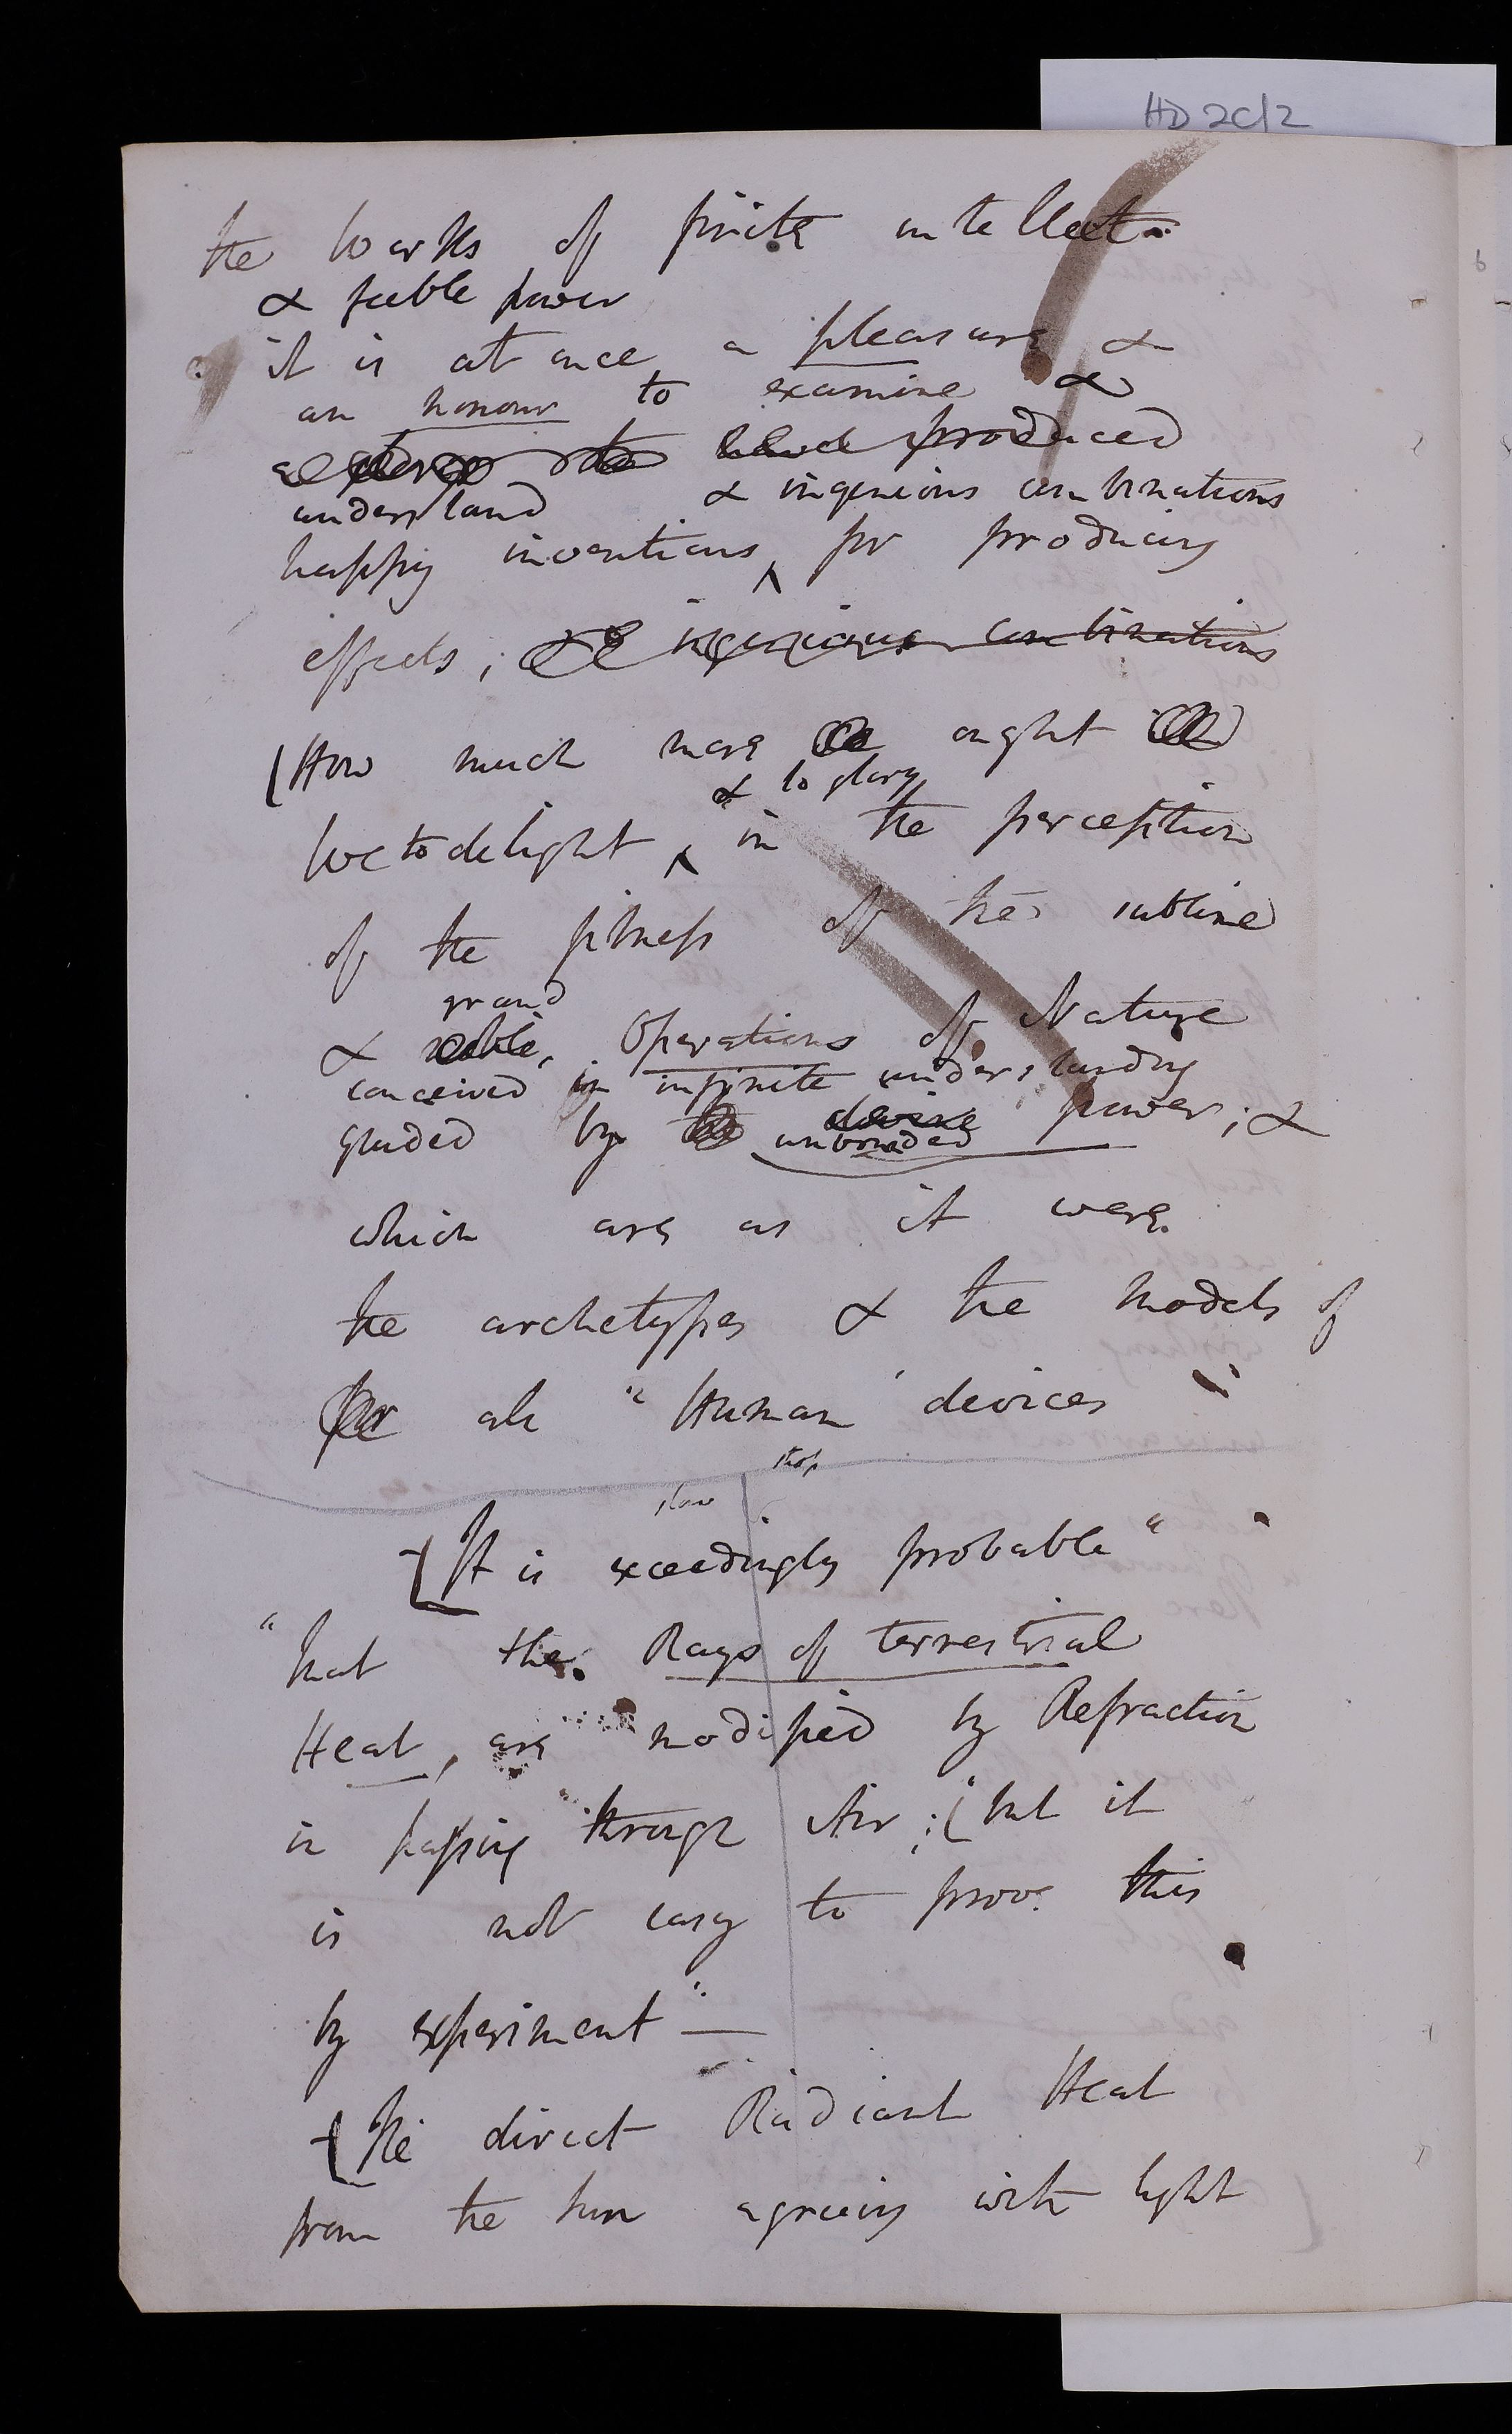 HD 2C/2
the works of finite intellect
& feeble power
it is at once a pleasure &
an honour to examine &
produced
understand & ingenious combinations
happy inventions for producing
effects; ingenious combinations
How much more ought
we to delight & to glory in the perception
of the fitness of the sublime
grand
& noble, Operations of Nature
conceived in infinite understanding
guided by devine power; &
unbounded
which are as it were
the archetypes & the models of
for all "Human devices"
stop
slow
It is exceedingly probable"
"that the Rays of terrestrial
Heat, are modified by Refraction
in passing through Air; but it
is not easy to prove this
by experiment" —
The direct Radiant Heat
from the Sun agreeing with light